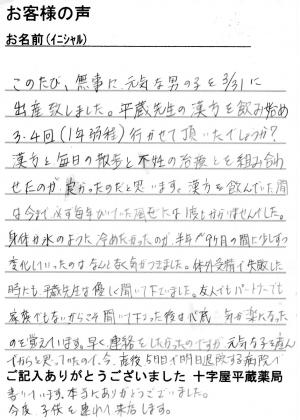 お客様の声
お名前(イニシャル)
このたび、無事に元気な男の子を3/31に
出産致しました。平蔵先生の漢方を飲み始め
3・4回(1年弱程)行かせて頂いたでしょうか?
漢方と毎日の散歩と不妊の治療とを組み合わ
せたのが良かったのだと思います。漢方を飲んでいた間
は今まで必ず毎年かいていた風邪には1度もかかりませんでした。
身体が氷のように冷めたかったのが、半年か9ヶ月の間に少しずつ
変化していったのはなんとなく気がつきました。体外受精で失敗した
時にも平蔵先生は優しく聞いて下さいました。友人でもパートナーでも
家族でもないからこそ聞いて下さった後は心が 気が楽になった
のを覚えています。早く連絡をしたかったのですが元気な子を産ん
でからと思っていたので、今、産後5日目で明日退院する病院で
ご記入ありがとうございました 十字屋平蔵薬局
書いています。本当にありがとうございました。
今度、子供を連れて来店します。